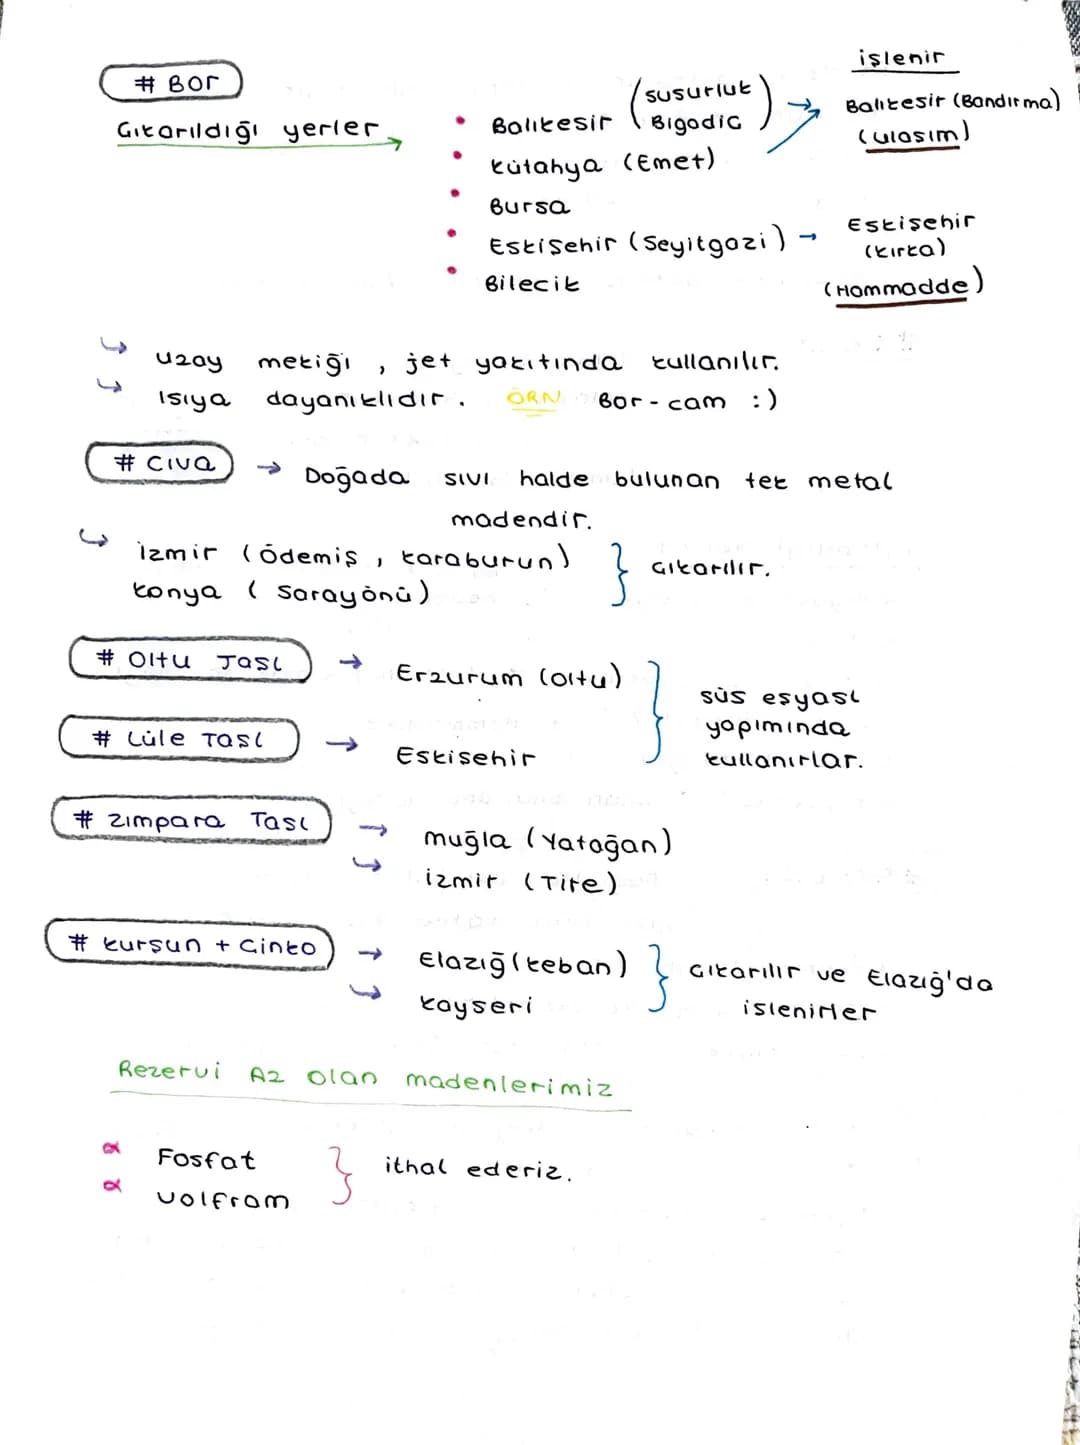 işlenir
# Bor
Çıkarıldığı yerler
• Balıkesir (Susurluk Bigadiç) → Balıkesir (Bandırma)
(ulaşım)
• Kütahya (Emet)
• Bursa
• Eskişehir (Seyitgazi) → Eskişehir
(Kırka)
• Bilecik
(Hammadde)
↳ Uzay mekiği, jet yakıtında kullanılır.
↳ Isıya dayanıklıdır. ÖRN Bor-cam :)
# Cıva → Doğada sıvı halde bulunan tek metal
madendir.
↳ İzmir (Ödemiş, Karaburun) } Çıkarılır.
Konya (Sarayönü)
# Oltu Taşı → Erzurum (Oltu) } süs eşyası
yapımında
# Lüle Taşı → Eskişehir
kullanırlar.
# Zımpara Taşı → Muğla (Yatağan)
↳ İzmir (Tire)
# Kurşun + Çinko → Elazığ (Keban) } Çıkarılır ve Elazığ'da
↳ Kayseri
işlenirler
Rezervi Az olan madenlerimiz
α Fosfat } ithal ederiz.
α Volfram